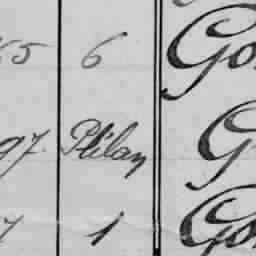 65 6 Go
97. Philan G
7 1 Go